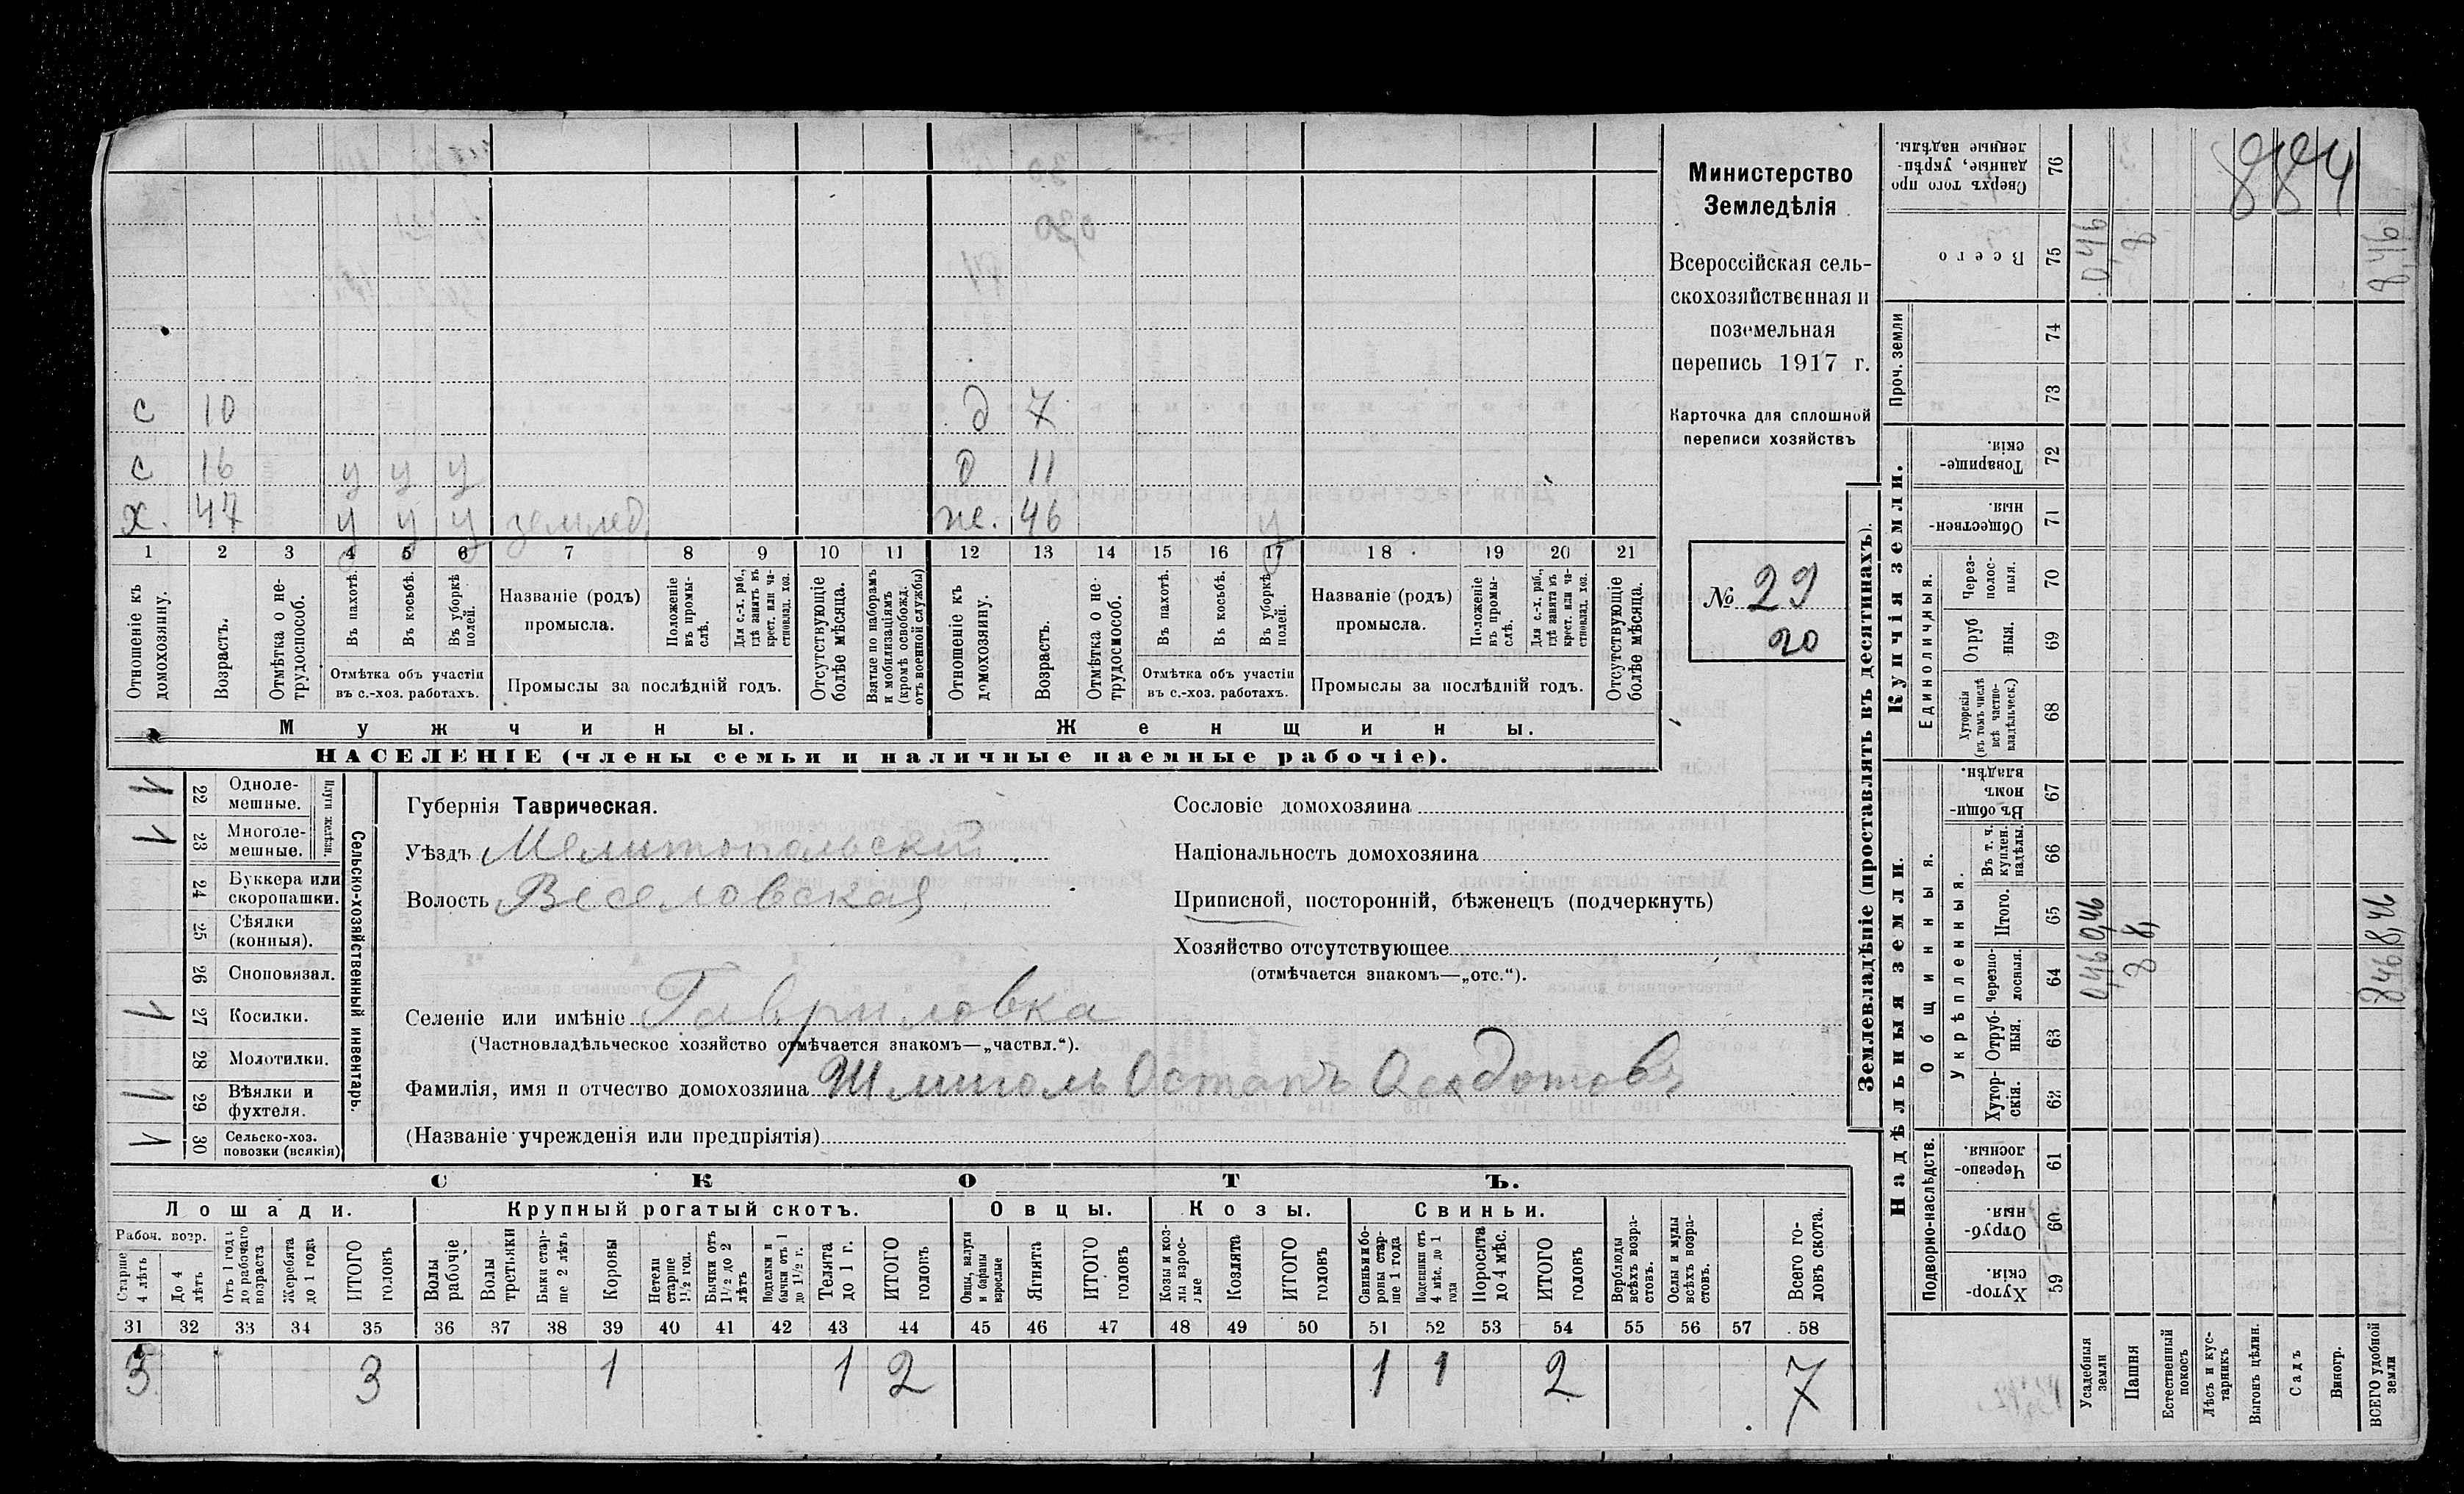 с 10 д 7
с 16 у у у д 11
х. 47 у у у землед. же. 46 у
1 2 3 4 5 6 7 8 9 10 11 12 13 14 15 16 17 18 19 20 21
Отношеніе къ домохозяину.
Возрастъ.
Отмѣтка о не-трудоспособ.
Въ пахотѣ.
Въ косьбѣ.
Въ уборкѣ полей.
Отмѣтка объ участіи
въ с.-хоз. работахъ.
Названіе (родъ)
промысла.
Положеніе въ промы-слѣ.
Для с.-х. раб., гдѣ занятъ въ крест. или ча-стновлад. хоз.
Промыслы за послѣдній годъ.
Отсутствующіе болѣе мѣсяца.
Взятые по наборамъ и мобилизаціямъ (кромѣ освобожд. отъ военной службы)
Отношеніе къ домохозяину.
Возрастъ.
Отмѣтка о не-трудоспособ.
Въ пахотѣ.
Въ косьбѣ.
Въ уборкѣ полей.
Отмѣтка объ участіи
въ с.-хоз. работахъ.
Названіе (родъ)
промысла.
Положеніе въ промы-слѣ.
Для с.-х. раб., гдѣ занята въ крест. или ча-стновлад. хоз.
Промыслы за послѣдній годъ.
Отсутствующіе болѣе мѣсяца.
Мужчины. Женщины.
НАСЕЛЕНІЕ (члены семьи и наличные наемные рабочіе).
Министерство
Земледѣлія
Всероссійская сель-
скохозяйственная и
поземельная
перепись 1917 г.
Карточка для сплошной
переписи хозяйствъ
№ 29
20
22 Одноле-мешные.
23 Многоле-мешные.
Плуги желѣзн.
24 Буккера или скоропашки.
25 Сѣялки (конныя).
26 Сноповязал.
27 Косилки.
28 Молотилки.
29 Вѣялки и фухтеля.
30 Сельско-хоз. повозки (всякія)
Сельско-хозяйственный инвентарь.
Губернія Таврическая.
Уѣздъ Мелитопольскій
Волость Веселовская
Селеніе или имѣніе Гавриловка
(Частновладѣльческое хозяйство отмѣчается знакомъ—„частвл.“).
Фамилія, имя и отчество домохозяина Шмиголь Остапъ Ѳедотовъ
(Названіе учрежденія или предпріятія)
Сословіе домохозяина
Національность домохозяина
Приписной, посторонній, бѣженецъ (подчеркнуть)
Хозяйство отсутствующее
(отмѣчается знакомъ—„отс.“).
СКОТЪ.
Лошади. Крупный рогатый скотъ. Овцы. Козы. Свиньи.
Рабоч. возр.
Старше 4 лѣтъ
До 4 лѣтъ
Отъ 1 года до рабочаго возраста
Жеребята до 1 года
ИТОГО головъ
Волы рабочіе
Волы третьяки
Быки стар-ше 2 лѣтъ
Коровы
Нетели старше 1½ год.
Бычки отъ 1½ до 2 лѣтъ
Подтелки и бычки отъ 1 до 1½ г.
Телята до 1 г.
ИТОГО головъ
Овцы, валухи и бараны взрослые
Ягнята
ИТОГО головъ
Козы и коз-лы взрос-лые
Козлята
ИТОГО головъ
Свиньи и бо-ровы стар-ше 1 года
Подсвинки отъ 4 мѣс. до 1 года
Поросята до 4 мѣс.
ИТОГО головъ
Верблюды всѣхъ возра-стовъ.
Ослы и мулы всѣхъ возра-стовъ.
Всего го-ловъ скота.
31 32 33 34 35 36 37 38 39 40 41 42 43 44 45 46 47 48 49 50 51 52 53 54 55 56 57 58
3 3 1 1 2 1 1 2 7
Землевладѣніе (проставлять въ десятинахъ).
Надѣльныя земли. Купчія земли.
Подворно-наслѣдств. Общинныя. Укрѣпленныя. Единоличныя. Проч. земли
76 Сверхъ того про-данные, укрѣп-ленные надѣлы.
884
75 Всего 0,46 8 8,46
74
73
72 Товарище-скія.
71 Обществен-ныя.
70 Через-полос-ныя.
69 Отруб-ныя.
68 Хуторскія (въ томъ числѣ всѣ частно-владѣльческ.)
67 Въ общи-номъ владѣн.
66 Въ т. ч. куплен. надѣлы.
65 Итого. 0,46 8, 8,46
64 Черезпо-лосныя. 0,46 8 8,46
63 Отруб-ныя.
62 Хутор-скія.
61 Черезпо-лосныя.
60 Отруб-ныя.
59 Хутор-скія.
Усадебныя земли
Пашня
Естественный покосъ
Лѣсъ и кус-тарникъ
Выгонъ цѣлин.
Садъ
Виногр.
ВСЕГО удобной земли